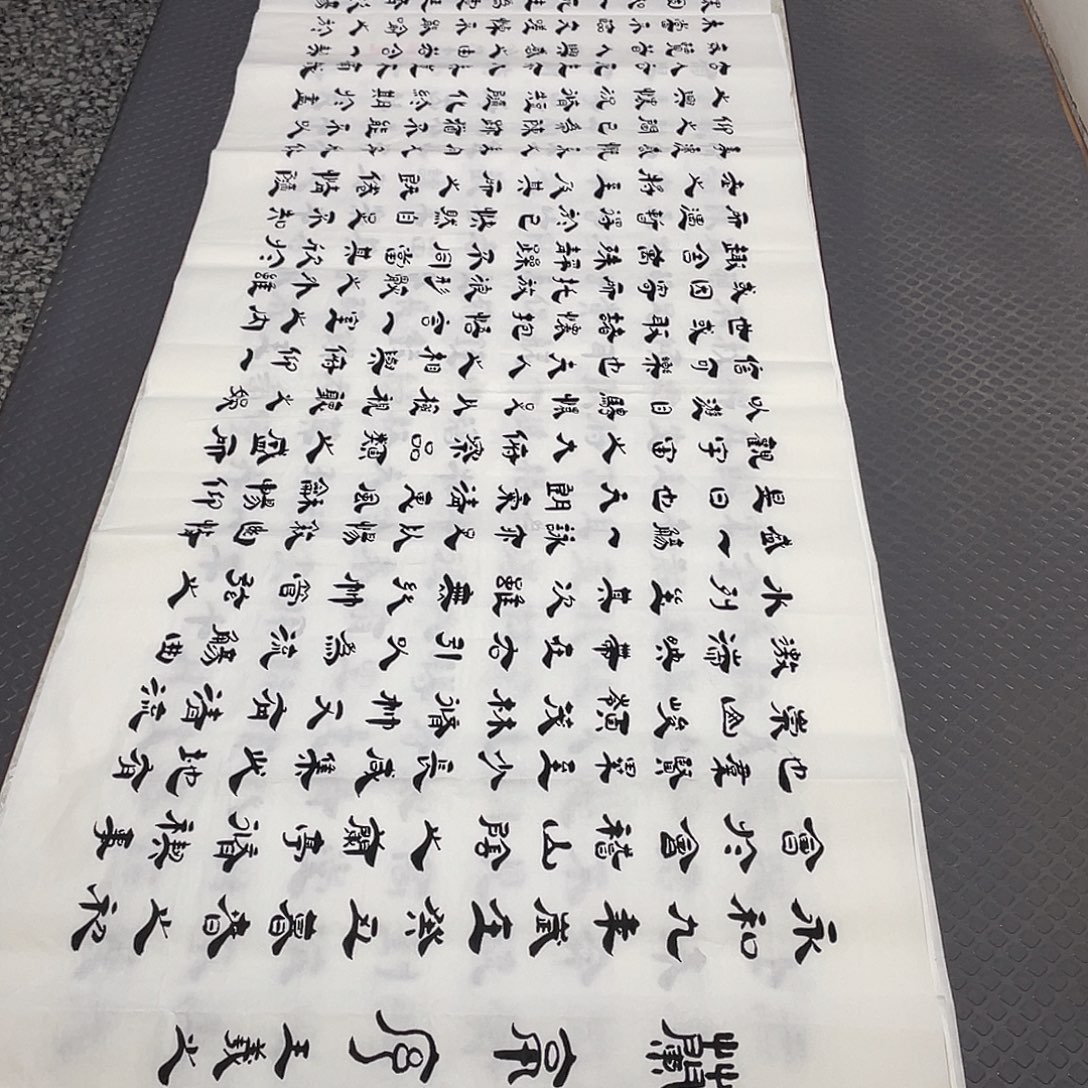 蘭亭序王羲之
永和九年歲在癸丑暮春之初
會於會稽山陰之蘭亭脩禊事
也群賢畢至少長咸集此地有
崇山峻領茂林脩竹又有清流
激湍映帶左右引以為流觴曲
水列坐其次雖無絲竹管弦之
盛一觴一詠亦足以暢敘幽情
是日也天朗氣清惠風和暢仰
觀宇宙之大俯察品類之盛所
以遊目騁懷足以極視聽之娛
信可樂也夫人之相與俯仰一
世或取諸懷抱悟言一室之內
或因寄所託放浪形骸之外雖
趣舍萬殊靜躁不同當其欣於
所遇暫得於己快然自足不知
老之將至及其所之既倦情隨
事遷感慨係之矣向之所欣俛
仰之間已為陳跡猶不能不以
之興懷況脩短隨化終期於盡
古人云死生亦大矣豈不痛哉
每覽昔人興感之由若合一契
未嘗不臨文嗟悼不能喻之於